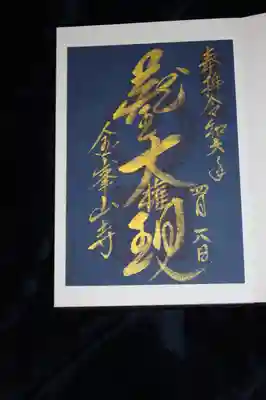 奉拝令和年
四月日
蔵王大権現
金峯山寺